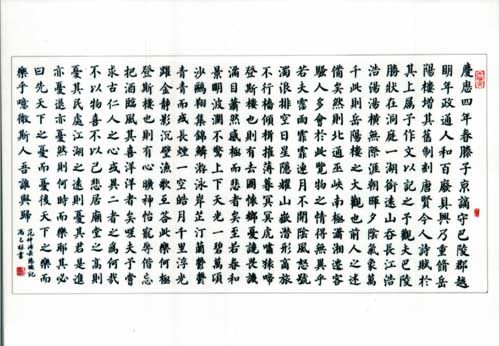 慶歷四年春滕子京謫守巴陵郡越
明年政通人和百廢具興乃重脩岳
陽樓增其舊制刻唐賢今人詩賦於
其上屬予作文以記之予觀夫巴陵
勝狀在洞庭一湖銜遠山吞長江浩
浩湯湯橫無際涯朝暉夕陰氣象萬
千此則岳陽樓之大觀也前人之述
備矣然則北通巫峽南極瀟湘遷客
騷人多會於此覽物之情得無異乎
若夫霪雨霏霏連月不開陰風怒號
濁浪排空日星隱耀山嶽潛形商旅
不行檣傾楫摧薄暮冥冥虎嘯猿啼
登斯樓也則有去國懷鄉憂讒畏譏
滿目蕭然感極而悲者矣至若春和
景明波瀾不驚上下天光一碧萬頃
沙鷗翔集錦鱗游泳岸芷汀蘭鬱鬱
青青而或長煙一空皓月千里浮光
躍金靜影沉璧漁歌互答此樂何極
登斯樓也則有心曠神怡寵辱偕忘
把酒臨風其喜洋洋者矣嗟夫予嘗
求古仁人之心或異二者之為何哉
不以物喜不以己悲居廟堂之高則
憂其民處江湖之遠則憂其君是進
亦憂退亦憂然則何時而樂耶其必
曰先天下之憂而憂後天下之樂而
樂乎噫微斯人吾誰與歸
范仲淹岳陽樓記
書